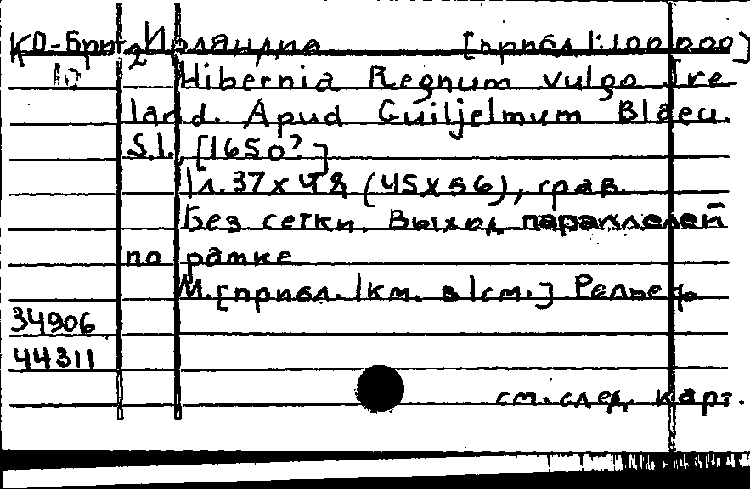 КП-Брит.2 Ирландия [прибл 1:100 000]
10 Hibernia Regnum vulgo Ire
land. Apud Guiljelmum Blaeu.
S.l., [1650?]
1л. 37 x 48 (45 x 56), грав.
Без сетки. Выход параллелей
по рамке
М. [прибл. 1км. в 1см.] Рельеф
34906
44311
см. след. карт.